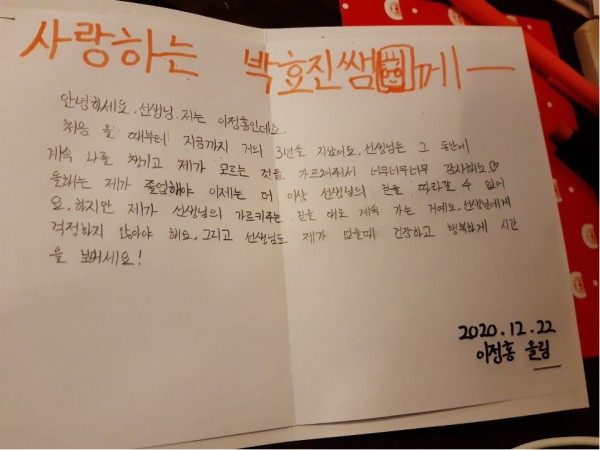 사랑하는 박효진쌤께
안녕하세요. 선생님. 저는 이정홍인데요.
처음 올 때부터 지금까지 거의 3년을 지났어요. 선생님은 그 동안에
계속 나를 챙기고 제가 모르는 것을 가르쳐주셔서 너무너무너무 감사해요♡
올해는 제가 졸업해야 이제는 더 이상 선생님의 을 따라갈 수 없어
요. 하지만 제가 선생님의 가르키주는 대로 계속 가는 거예요. 선생님에게
걱정하지 않아야 해요. 그리고 선생님도 제가 없을때 건강하고 행복하게 시간
을 보내세요!
2020.12.22
이정홍 올림